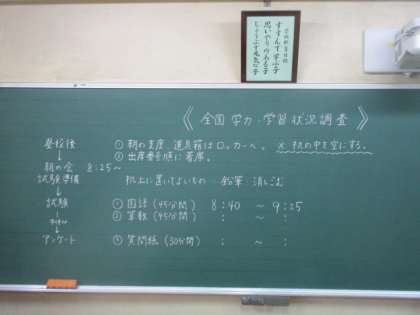 学校教育目標
すすんで学ぶ子
思いやりのある子
じょうぶで元気な子
《全国学力・学習状況調査》
登校後 ① 朝の支度、道具箱はロッカーへ。 ※机の中を空にする。
↓ ② 出席番号順に着席。
朝の会 8:25~
試験準備 机上に置いてよいもの…鉛筆・消しゴム
↓
試験 ① 国語(45分間) 8:40 ~ 9:25
② 算数(45分間) : ~ :
↓
アンケート ① 質問紙(30分間) : ~ :